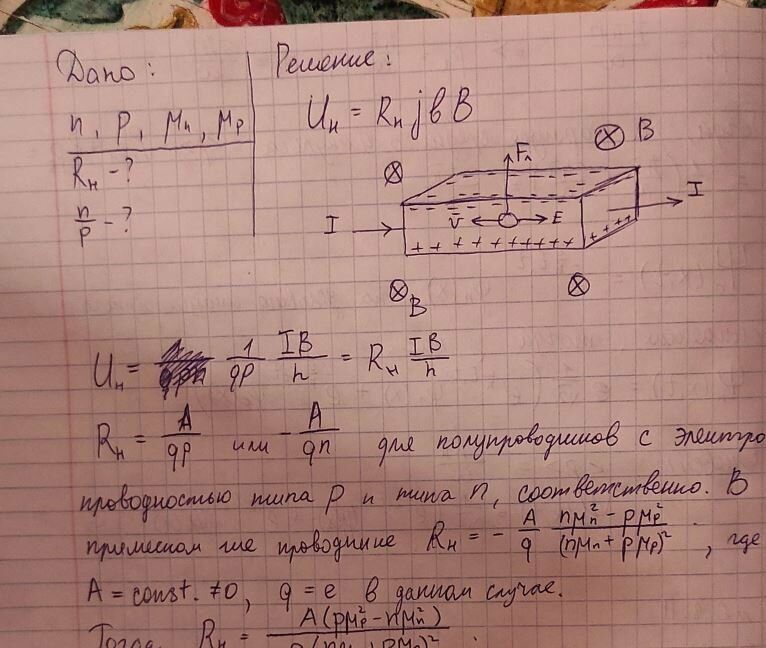 Дано:
n, p, μn, μp
RH - ?
n/p - ?
Решение:
UH = RH j b B
⊗ B
Fл
⊗
I
v̄
E
I
+ + + + + + + + + + +
+ + + +
⊗ B
⊗
UH = 1/qp IB/h = RH IB/h
RH = A/qp или - A/qn для полупроводников с электро
проводностью типа p и типа n, соответственно. В
примесном же проводнике RH = - A/q (nμn² - pμp²)/(nμn + pμp)², где
A = const. ≠0, q = e в данном случае.
Тогда RH = A(pμp² - nμn²)